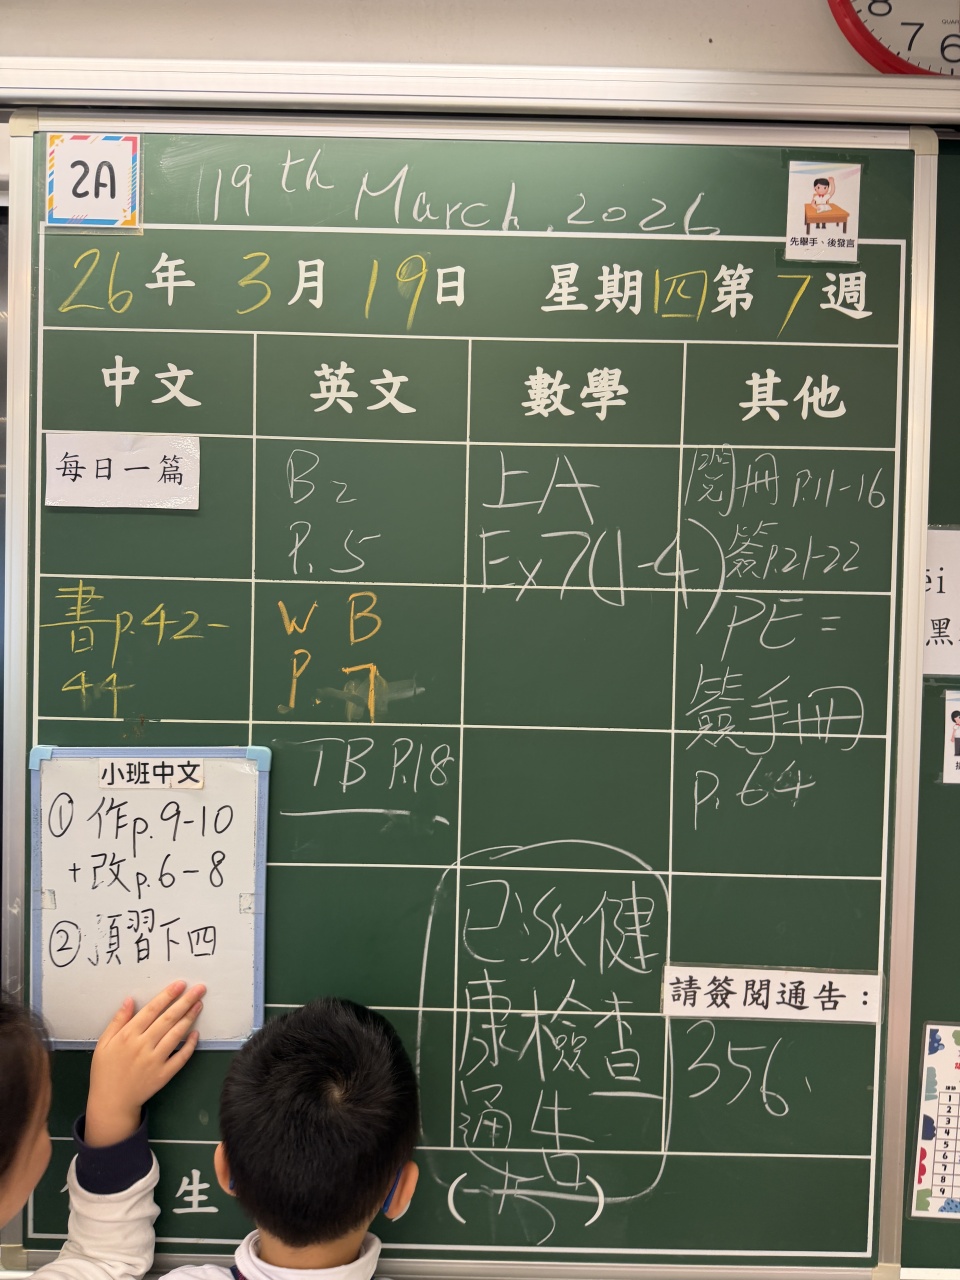 2A
19th March, 2026
先舉手、後發言
26年 3月 19日 星期四 第7週
中文 英文 數學 其他
每日一篇
書p.42-
44
小班中文
① 作p.9-10
+改p.6-8
② 預習下四
生
B2
P.5
WB
P.7
TB P.18
上A
Ex7(1-4)
已派健
康檢查
通告
閱冊 P.11-16
簽P.21-22
PE=
簽手冊
p.64
請簽閱通告:
356
8
7
6
QUAR
黑
1
2
3
4
5
6
7
8
9